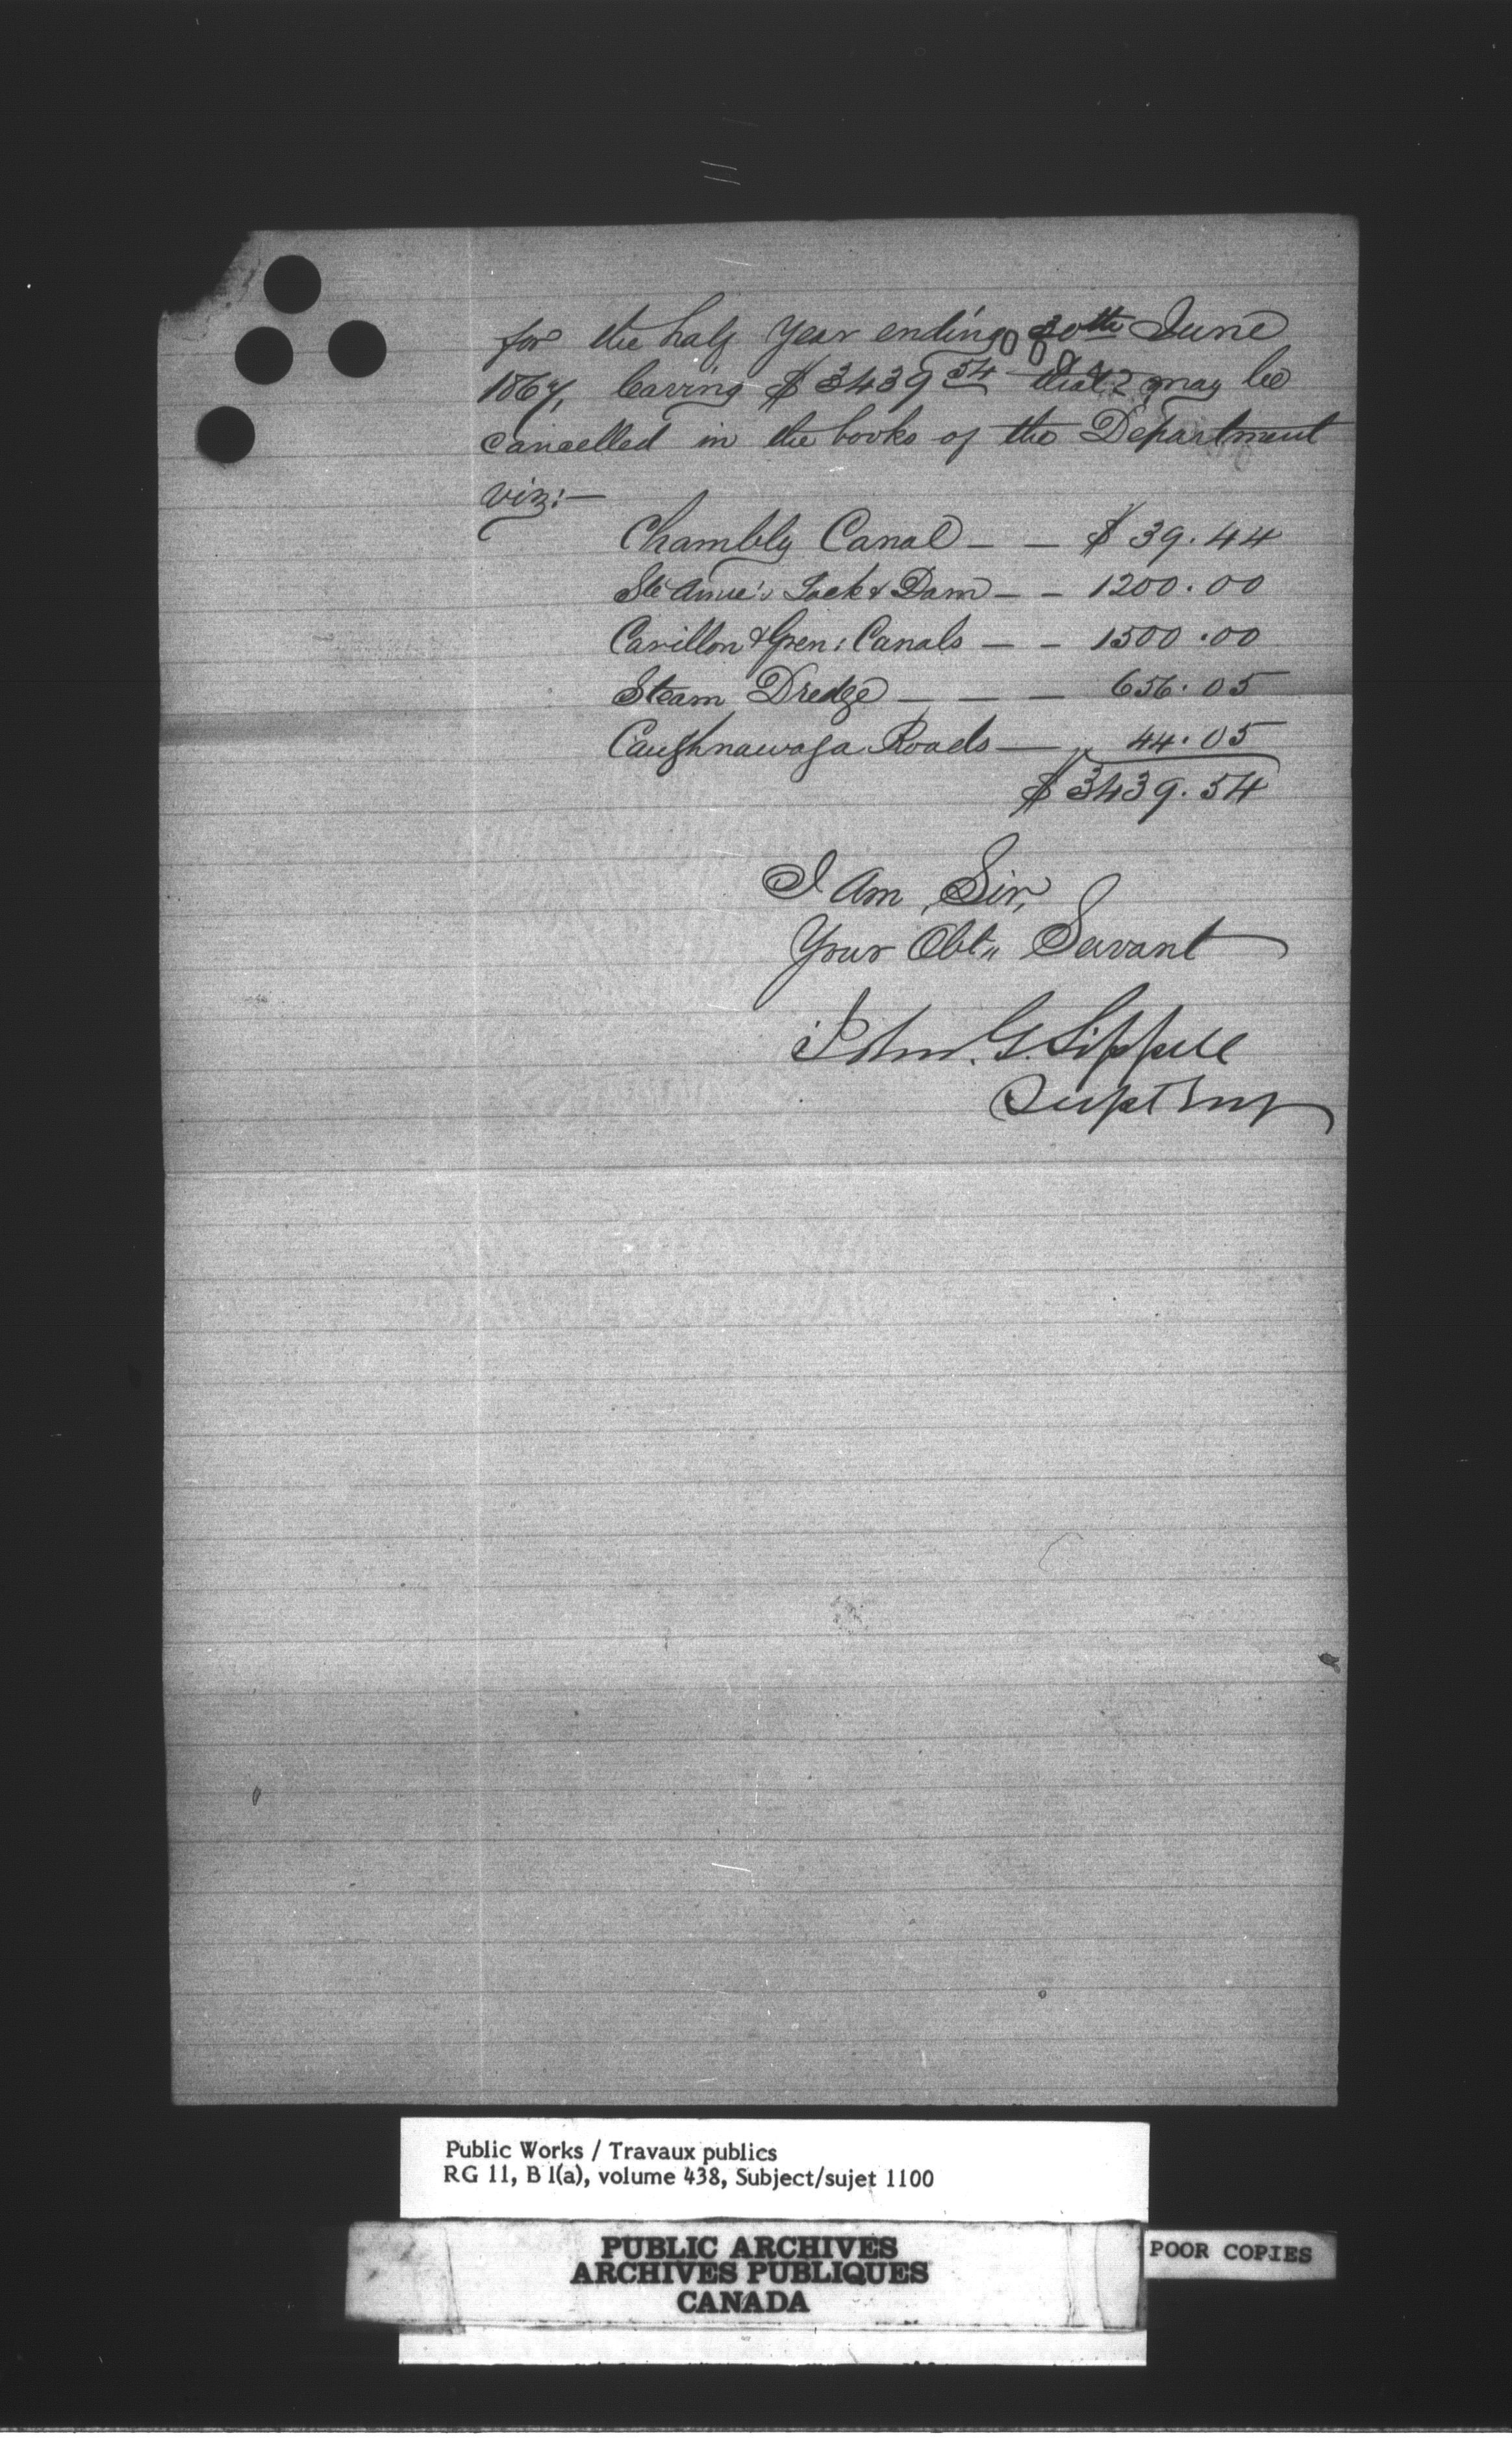 for the half Year ending 30th June
1867, leaving $3439 54 that may be
cancelled in the books of the Department
viz:—
Chambly Canal — — $ 39.44
Ste Anne's Lock & Dam — — 1200.00
Carillon & Gren: Canals — — 1500.00
Steam Dredge — — — 656.05
Caughnawaga Roads — 44.05
$ 3439.54
I am, Sir,
Your Obt" Servant
John. G. Sippell
Supt Eng
Public Works / Travaux publics
RG 11, B 1(a), volume 438, Subject/sujet 1100
PUBLIC ARCHIVES
ARCHIVES PUBLIQUES
CANADA
POOR COPIES